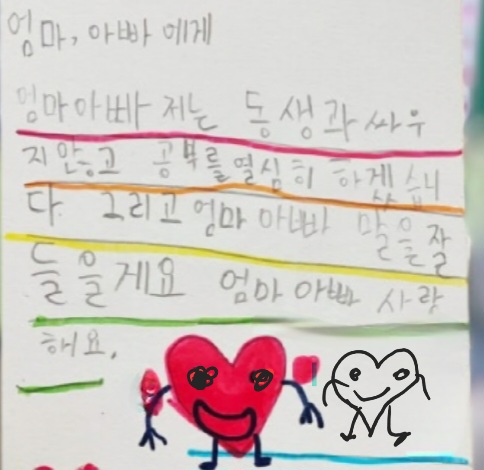 엄마, 아빠에게
엄마아빠 저는 동생과 싸우
지 안능고 공북를 열심히 하게습니
다. 그리고 엄마 아빠 말을 잘
들을게요 엄마 아빠 사랑
해요.